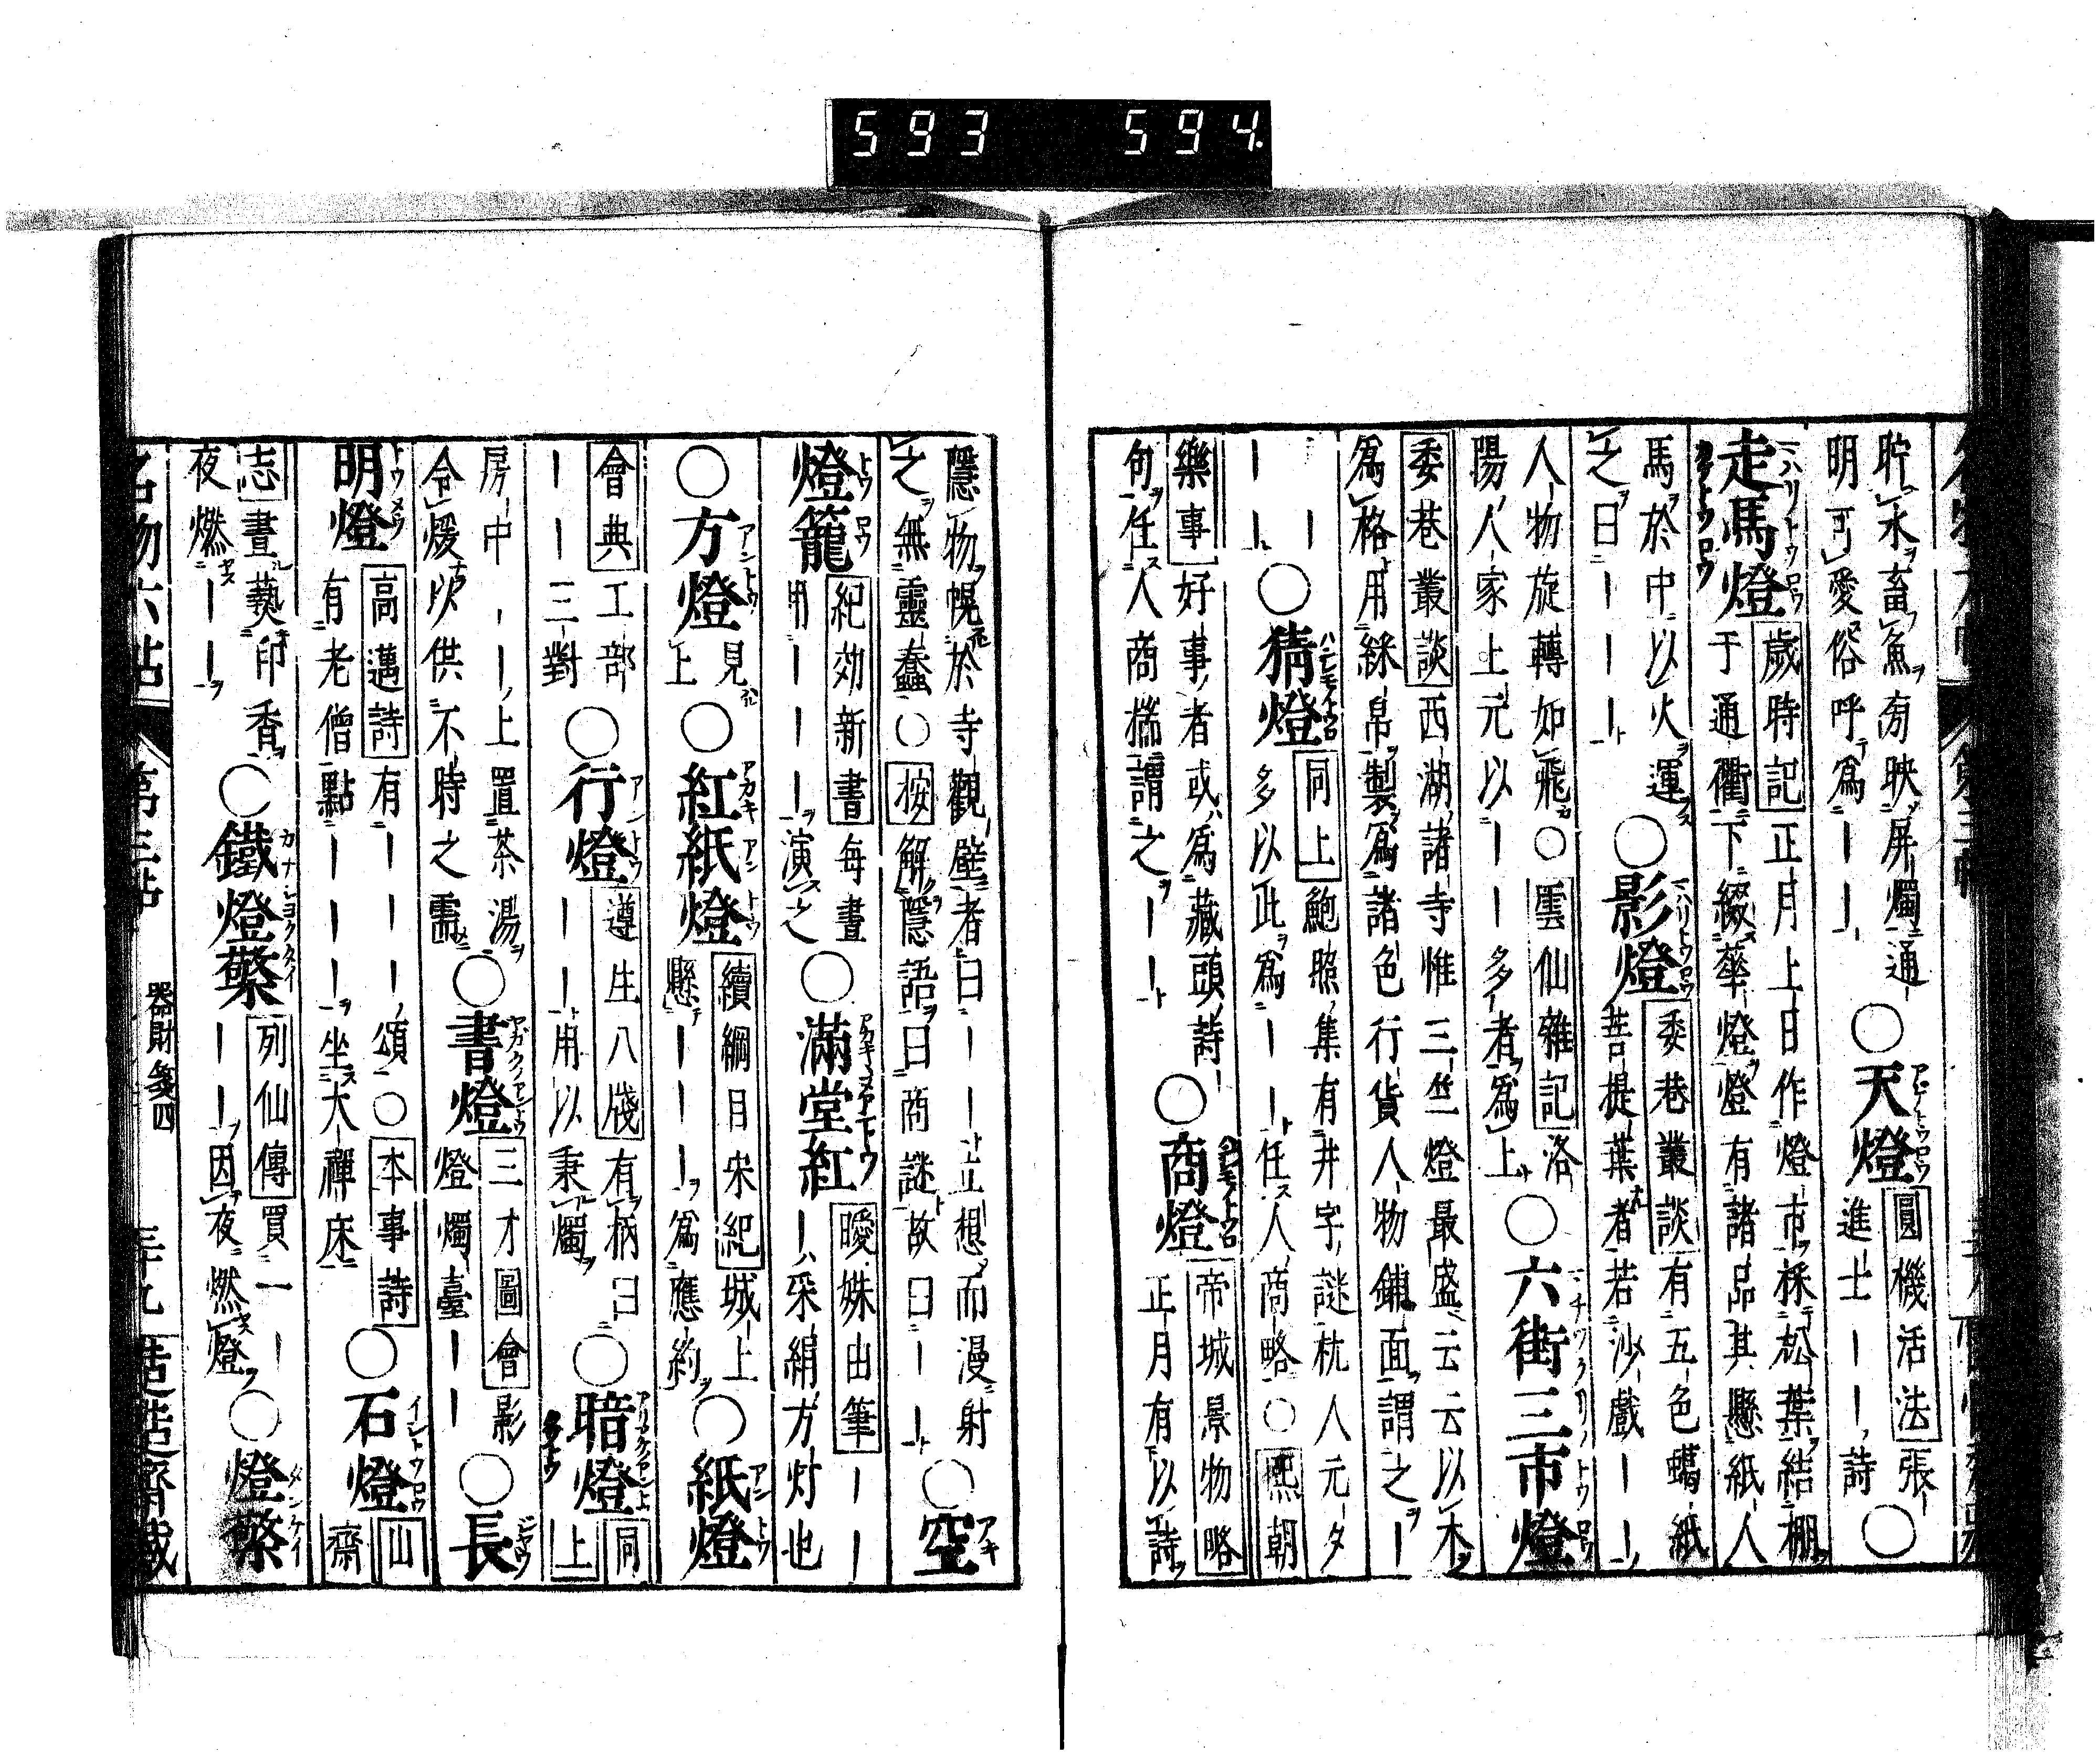 593 594
貯水畜魚旁映屏燭通
明可愛俗呼爲一一
○天燈
圓機活法張一
進士一一詩
○
走馬燈
歲時記正月上日作燈市採松葉結棚
于通衢下綴華燈燈有諸品其懸紙人
馬於中以火運
之曰一一一
○影燈
委巷叢談有五色蠟紙
菩提葉者若沙戲一一
人物旋轉如飛○雲仙雜記洛
陽人家上元以一一多者爲上
○六街三市燈
委巷叢談西湖諸寺惟三竺燈最盛云云以木
爲格用綵帛製爲諸色行貨人物鋪面謂之一
一一
一一
○猜燈
同上鮑照集有井字謎杭人元夕
多以此爲一一任人商略○熙朝
樂事好事者或爲藏頭詩
句任人商揣謂之一一
○商燈
帝城景物略
正月有以詩
隱物幌於寺觀壁者曰一一立想而漫射
之無靈蠢○按解隱語曰商謎故曰一一
○空
燈籠
紀効新書每晝
用一一一演之
○滿堂紅
曖姝由筆一一
一采絹方灯也
○方燈
見
上
○紅紙燈
續綱目宋紀城上
懸一一一爲應約
○紙燈
會典工部
一一三對
○行燈
遵生八牋有柄曰
一一用以秉燭
○暗燈
同
上
房中一一上置茶湯
令煖以供不時之需
○書燈
三才圖會影
燈燭臺一一
○長
明燈
高邁詩有一一一頌○本事詩
有老僧點一一一坐大禪床
○石燈
山
齋
志晝爇印香
夜燃一一
○鐵燈檠
列仙傳買一一
一一因夜燃燈
○燈檠
名物六帖
第三帖
器財箋四
三十九